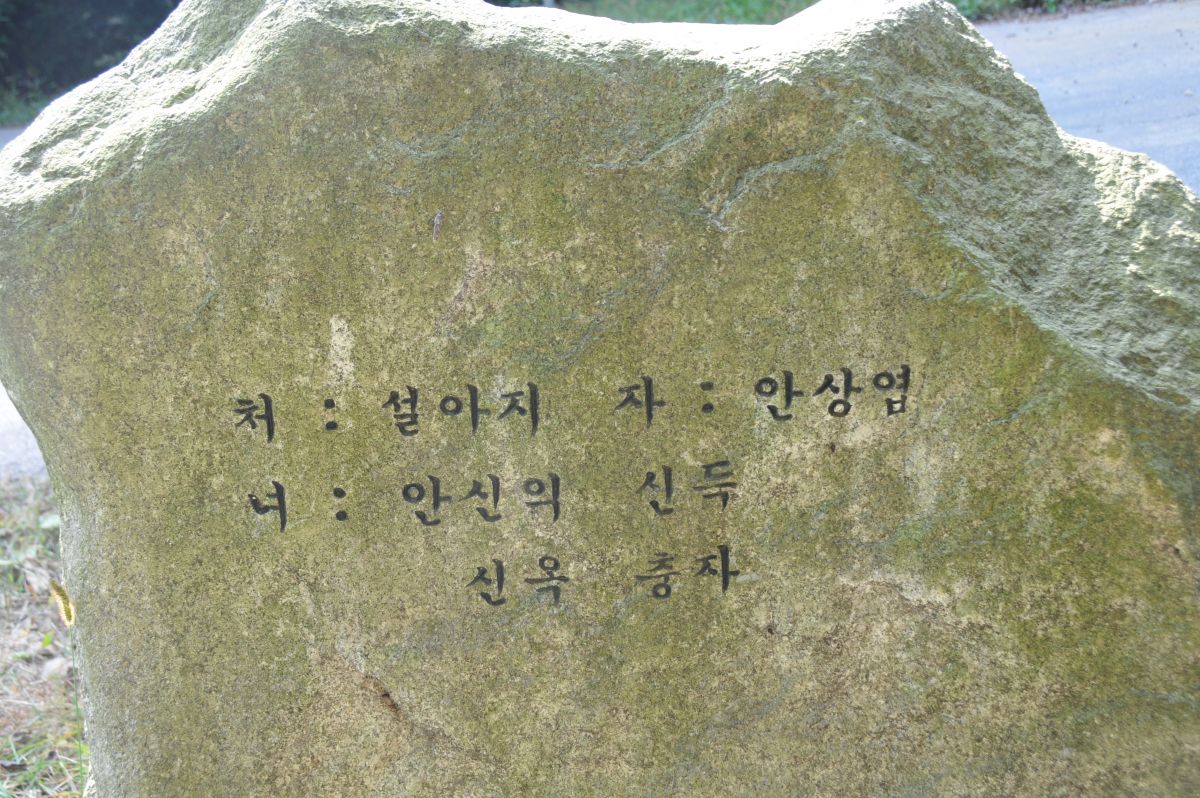 처 : 설아지 자 : 안상엽
녀 : 안신의 신득
신옥 충자